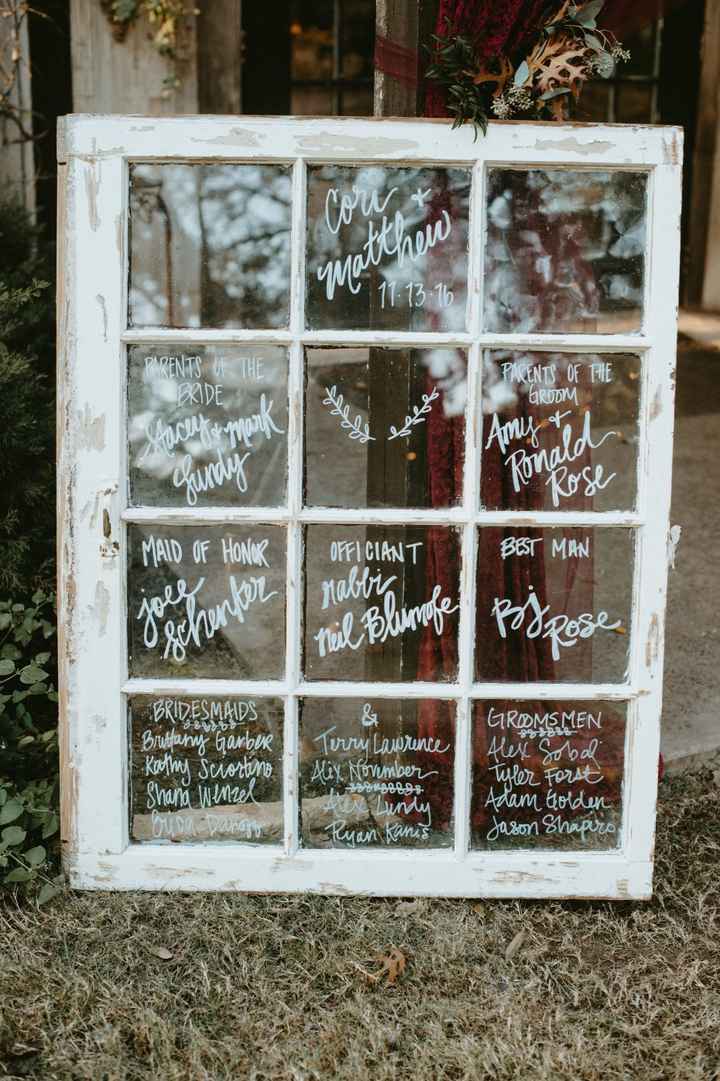 Cori +
Matthew
11·13·16
PARENTS OF THE
BRIDE
Stacey + Mark
Lundy
PARENTS OF THE
GROOM
Amy +
Ronald
Rose
MAID OF HONOR
Joee
Schenker
OFFICIANT
rabbi
Neil Blumofe
BEST MAN
BJ
Rose
BRIDESMAIDS
Brittany Garber
Kathy Sciortino
Shana Wenzel
&
Terry Lawrence
Alex November
Alex Lundy
Ryan Kanis
GROOMSMEN
Alex Sobol
Tyler Forst
Adam Golden
Jason Shapiro